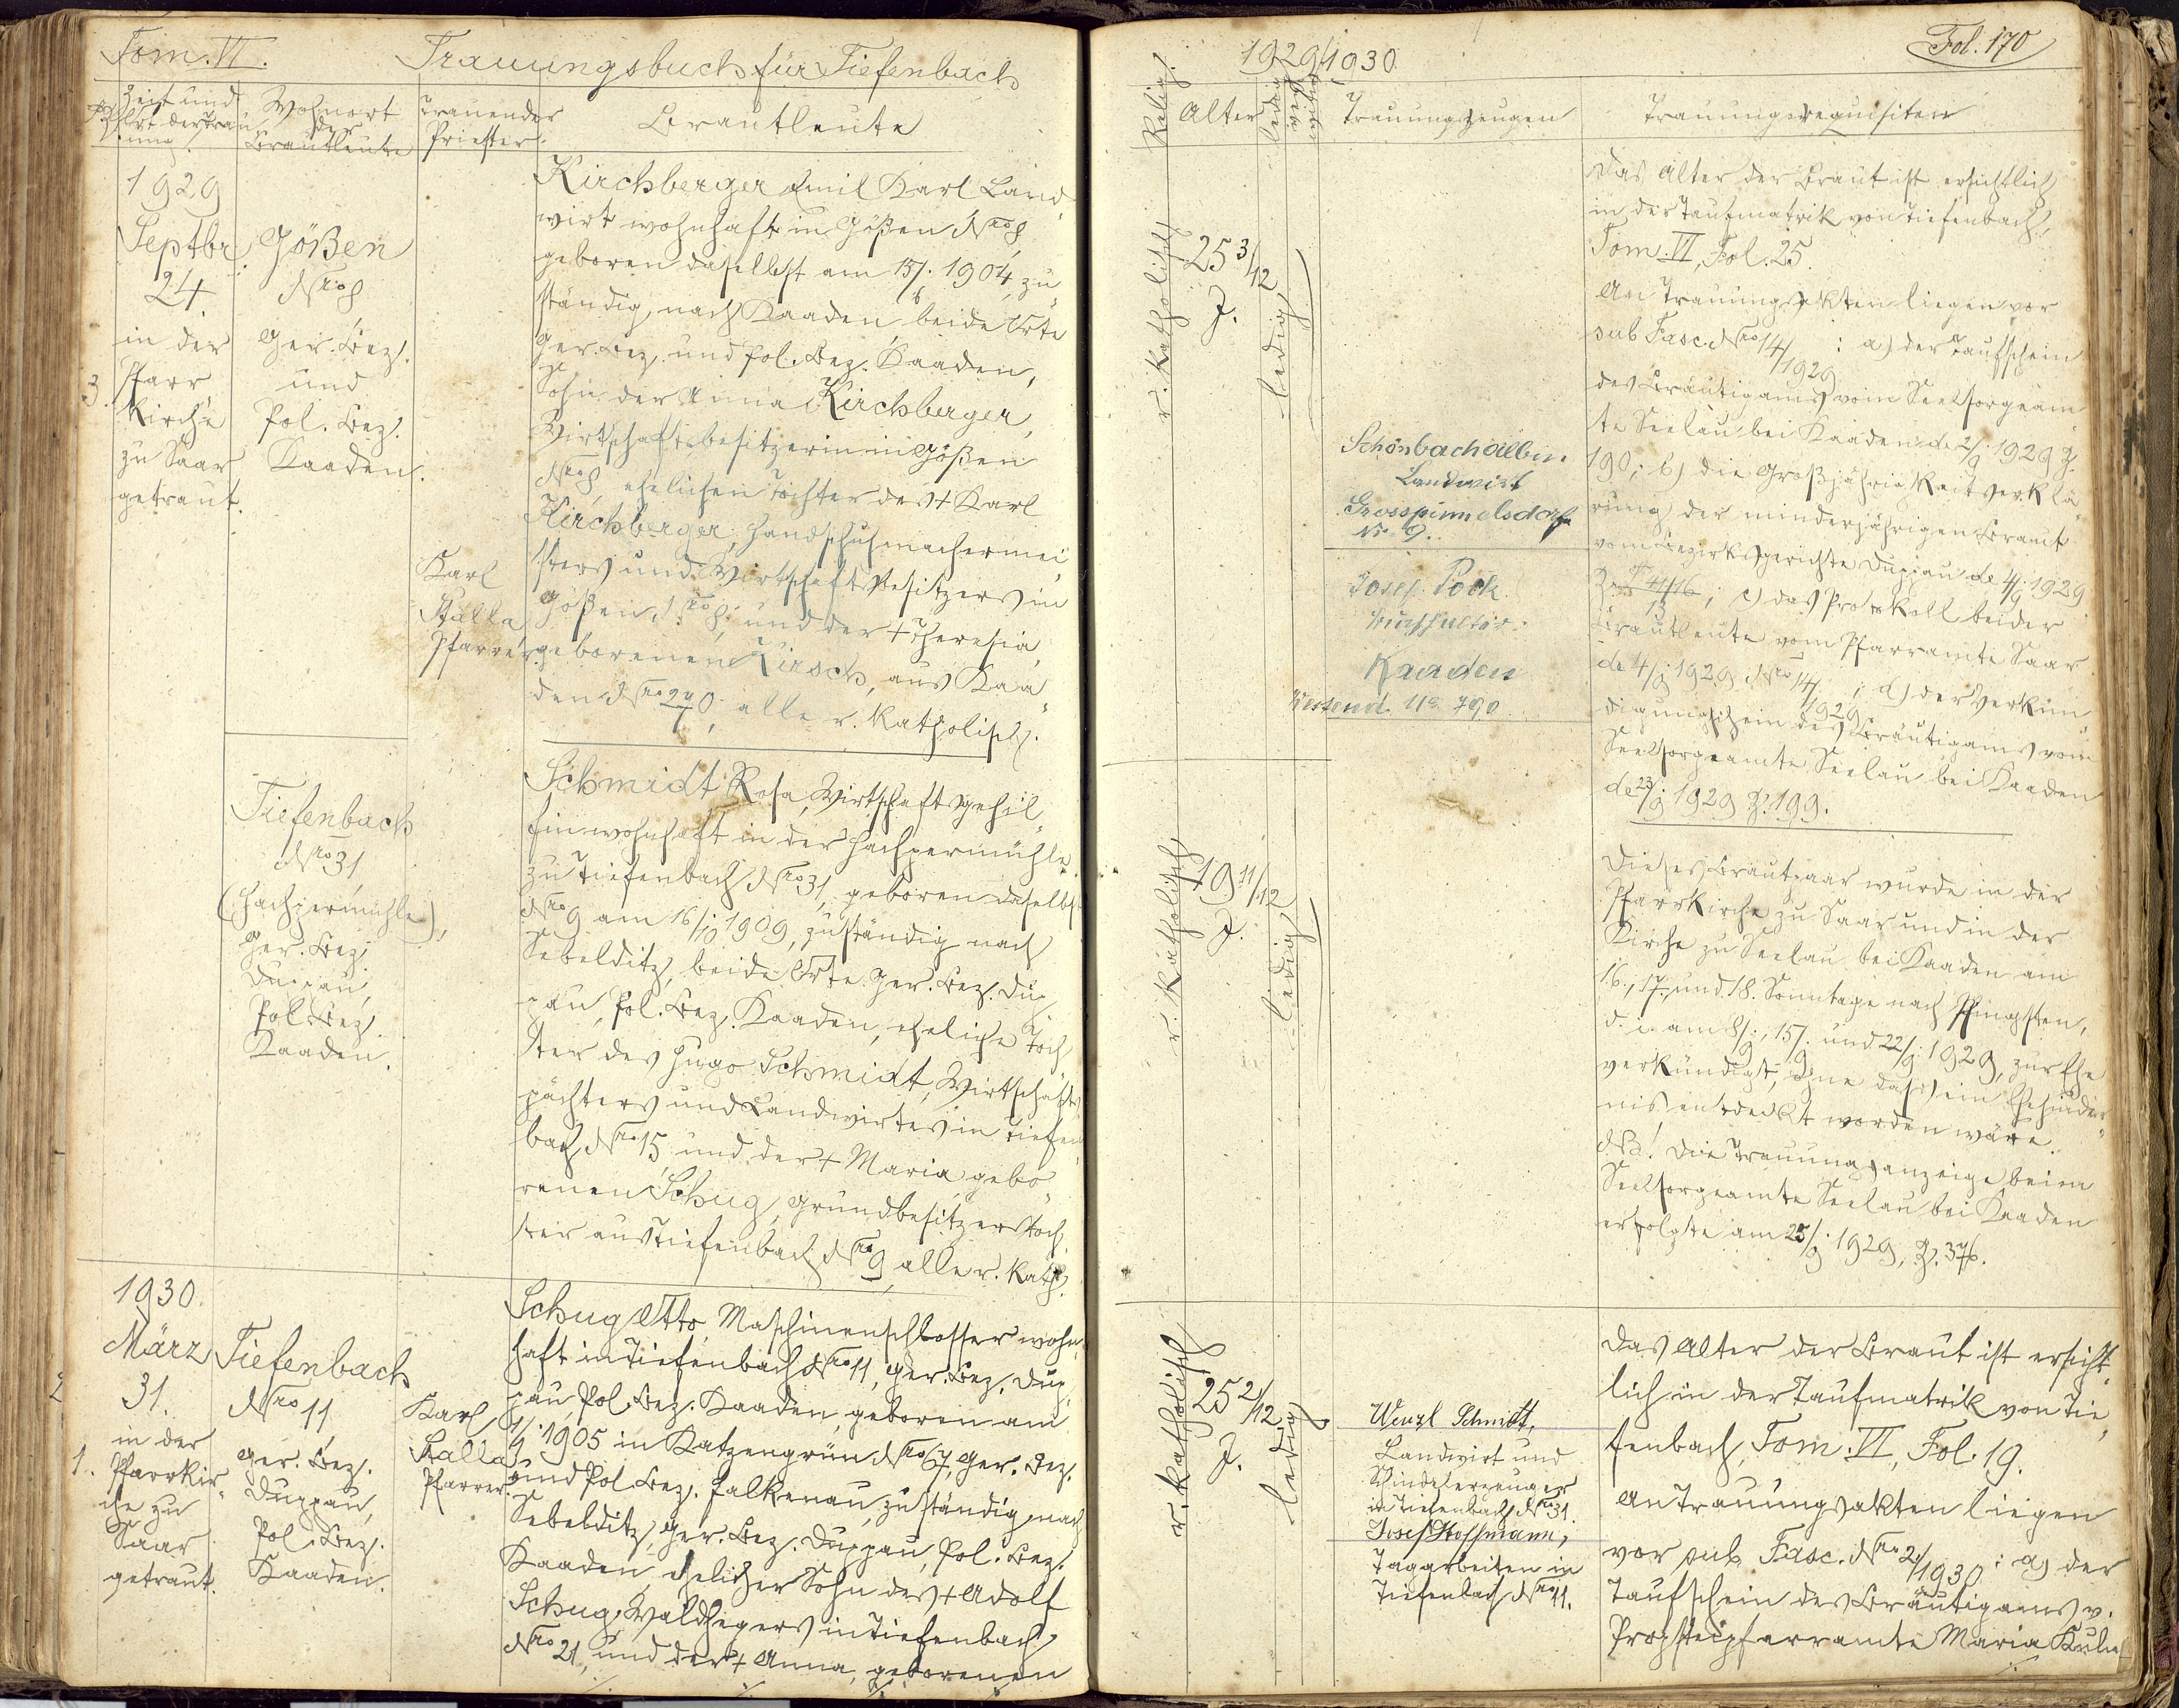 Tom. VI. Trauungsbuch für Tiefenbach
Zeit und
Ort der Trau
ung
Wohnort
der
Brautleute
Trauender
Priester.
Brautleute
1929
Septbr.
24.
in der
Pfarr
kirche
zu Saar
getraut.
3.
Gößen
Nro 8
Ger. Bez.
und
Pol. Bez.
Kaaden.
Karl
Stalla
Pfarrer
Kirchberger Emil Karl Land
wirt wohnhaft in Gößen Nro 8,
geboren daselbst am 15/6. 1904, zu
ständig nach Kaaden, beide Orte
Ger. Bez. und Pol. Bez. Kaaden,
Sohn der Anna Kirchberger,
Wirtschaftsbesitzerin in Gößen
Nro 8, ehelichen Tochter des + Karl
Kirchberger, Handschuhmachermei
sters und Wirtschaftsbesitzers in
Gößen, Nro 8; und der + Theresia,
geborenen Kirsch, aus Kaa
den Nro 270; alle r. katholisch.
Tiefenbach
Nro 31
(Hachzermühle),
Ger. Bez.
Duppau,
Pol. Bez.
Kaaden.
Schmidt Rosa, Wirtschaftsgehil
fin wohnhaft in der Hachzermühle
zu Tiefenbach Nro 31, geboren daselbst
Nro 9 am 16/10 1909, zuständig nach
Sebelditz, beide Orte Ger. Bez. Dup
pau, Pol. Bez. Kaaden, eheliche Toch
ter des Hugo Schmidt, Wirtschafts
pächters und Landwirtes in Tiefen
bach Nro 15, und der + Maria gebo
renen Schug, Grundbesitzerstoch
ter aus Tiefenbach Nro 9, alle r. kath.
1930.
März
31.
in der
Pfarrkir
che zu
Saar
getraut.
2
1.
Tiefenbach
Nro 11
Ger. Bez.
Duppau,
Pol. Bez.
Kaaden.
Karl
Stalla
Pfarrer.
Schug Otto, Maschinenschlosser wohn
haft in Tiefenbach Nro 11, Ger. Bez. Dup
pau, Pol. Bez. Kaaden, geboren am
1905 in Katzengrün Nro 67, Ger. Bez.
und Pol. Bez. Falkenau, zuständig nach
Sebelditz, Ger. Bez. Duppau, Pol. Bez.
Kaaden, ehelicher Sohn des + Adolf
Schug, Waldhegers in Tiefenbach
Nro 21, und der + Anna, geborenen
1929/1930
Fol. 170
Relig.
Alter
ledig
Trauungszeugen
Trauungsrequisiten
r. katholisch
25 3/12
J.
ledig
Schönbach Albin
Landwirt
Grosspinnelsdorf
Nr 9.
Josef Pock
Kaaden
No 790
Das Alter der Braut ist ersichtlich
in der Taufmatrik von Tiefenbach,
Tom. VI, Fol. 25.
An Trauungsakten liegen vor
sub Fasc. Nro 14/1929: a) der Taufschein
des Bräutigams vom Seelsorgeam
te Seelau bei Kaaden de 2/9. 1929 Z.
190; b) die Großjährigkeitserklä
rung der minderjährigen Braut
vom Bezirksgerichte Duppau de 4/9. 1929
; c) das Protokoll beider
Brautleute vom Pfarramte Saar
de 4/9 1929 Nro 14/1929; d) der Verkün
digungsschein des Bräutigams vom
Seelsorgeamte Seelau bei Kaaden
de 23/9. 1929 Z. 199.
r. katholisch
19 11/12
J.
ledig
Dieses Brautpaar wurde in der
Pfarrkirche zu Saar und in der
Kirche zu Seelau bei Kaaden am
16., 17. und 18. Sonntage nach Pfingsten,
d. i. am 8/9., 15/9. und 22/9. 1929, zur Ehe
verkündigt, ohne dass ein Ehehinder
nis entdeckt worden wäre.
Na! Die Trauungsanzeige beim
Seelsorgeamte Seelau bei Kaaden
erfolgte am 25/9. 1929, Z. 376.
r. katholisch
25 2/12
J.
ledig
Wenzl Schmidt,
Landwirt und
Schindelerzeuger
in Tiefenbach Nro 31.
Josef Hoffmann,
Tagarbeiter in
Tiefenbach Nro 11.
Das Alter der Braut ist ersicht
lich in der Taufmatrik von Tie
fenbach, Tom. VI, Fol. 19.
An Trauungsakten liegen
vor sub Fasc. Nro 2/1930: a) der
Taufschein des Bräutigams v.
Propsteipfarramte Maria Kulm